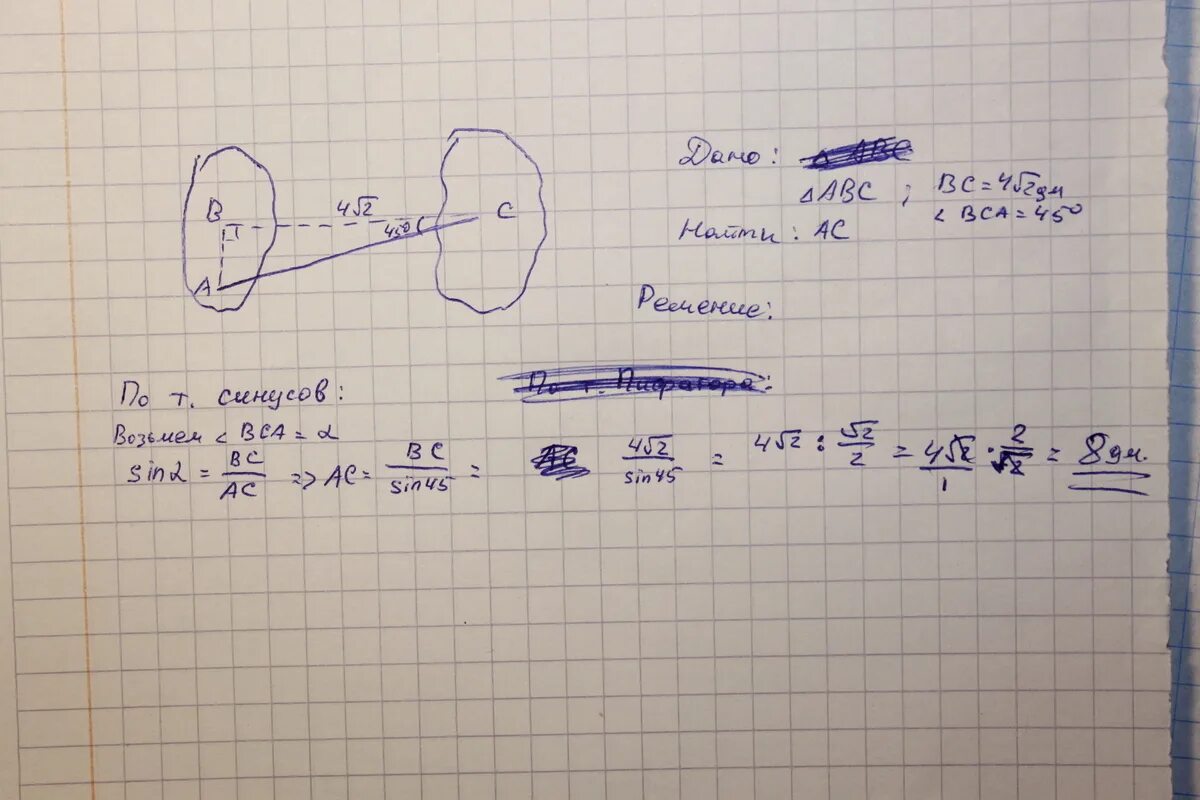 B 4√2 C
45°
A
Дано: △ABC
△ABC ; BC = 4√2 дм
∠ BCA = 45°
Найти: AC
Решение:
По т. Пифагора:
По т. синусов:
Возьмем ∠ BCA = α
sin α = BC/AC => AC = BC/sin45 = AC 4√2/sin45 = 4√2 : √2/2 = 4√2/1 · 2/√2 = 8 дм.